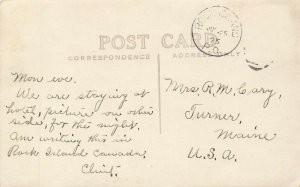 POST CARD
CORRESPONDENCE
ADDRESS ONLY
ROCK ISLAND
P.Q.
Mon eve.
We are staying at
hotel, picture on other
side, for this night.
Am writing this in
Rock Island Canada.
Chief.
Mrs. R.M. Cary,
Turner,
Maine
U.S.A.